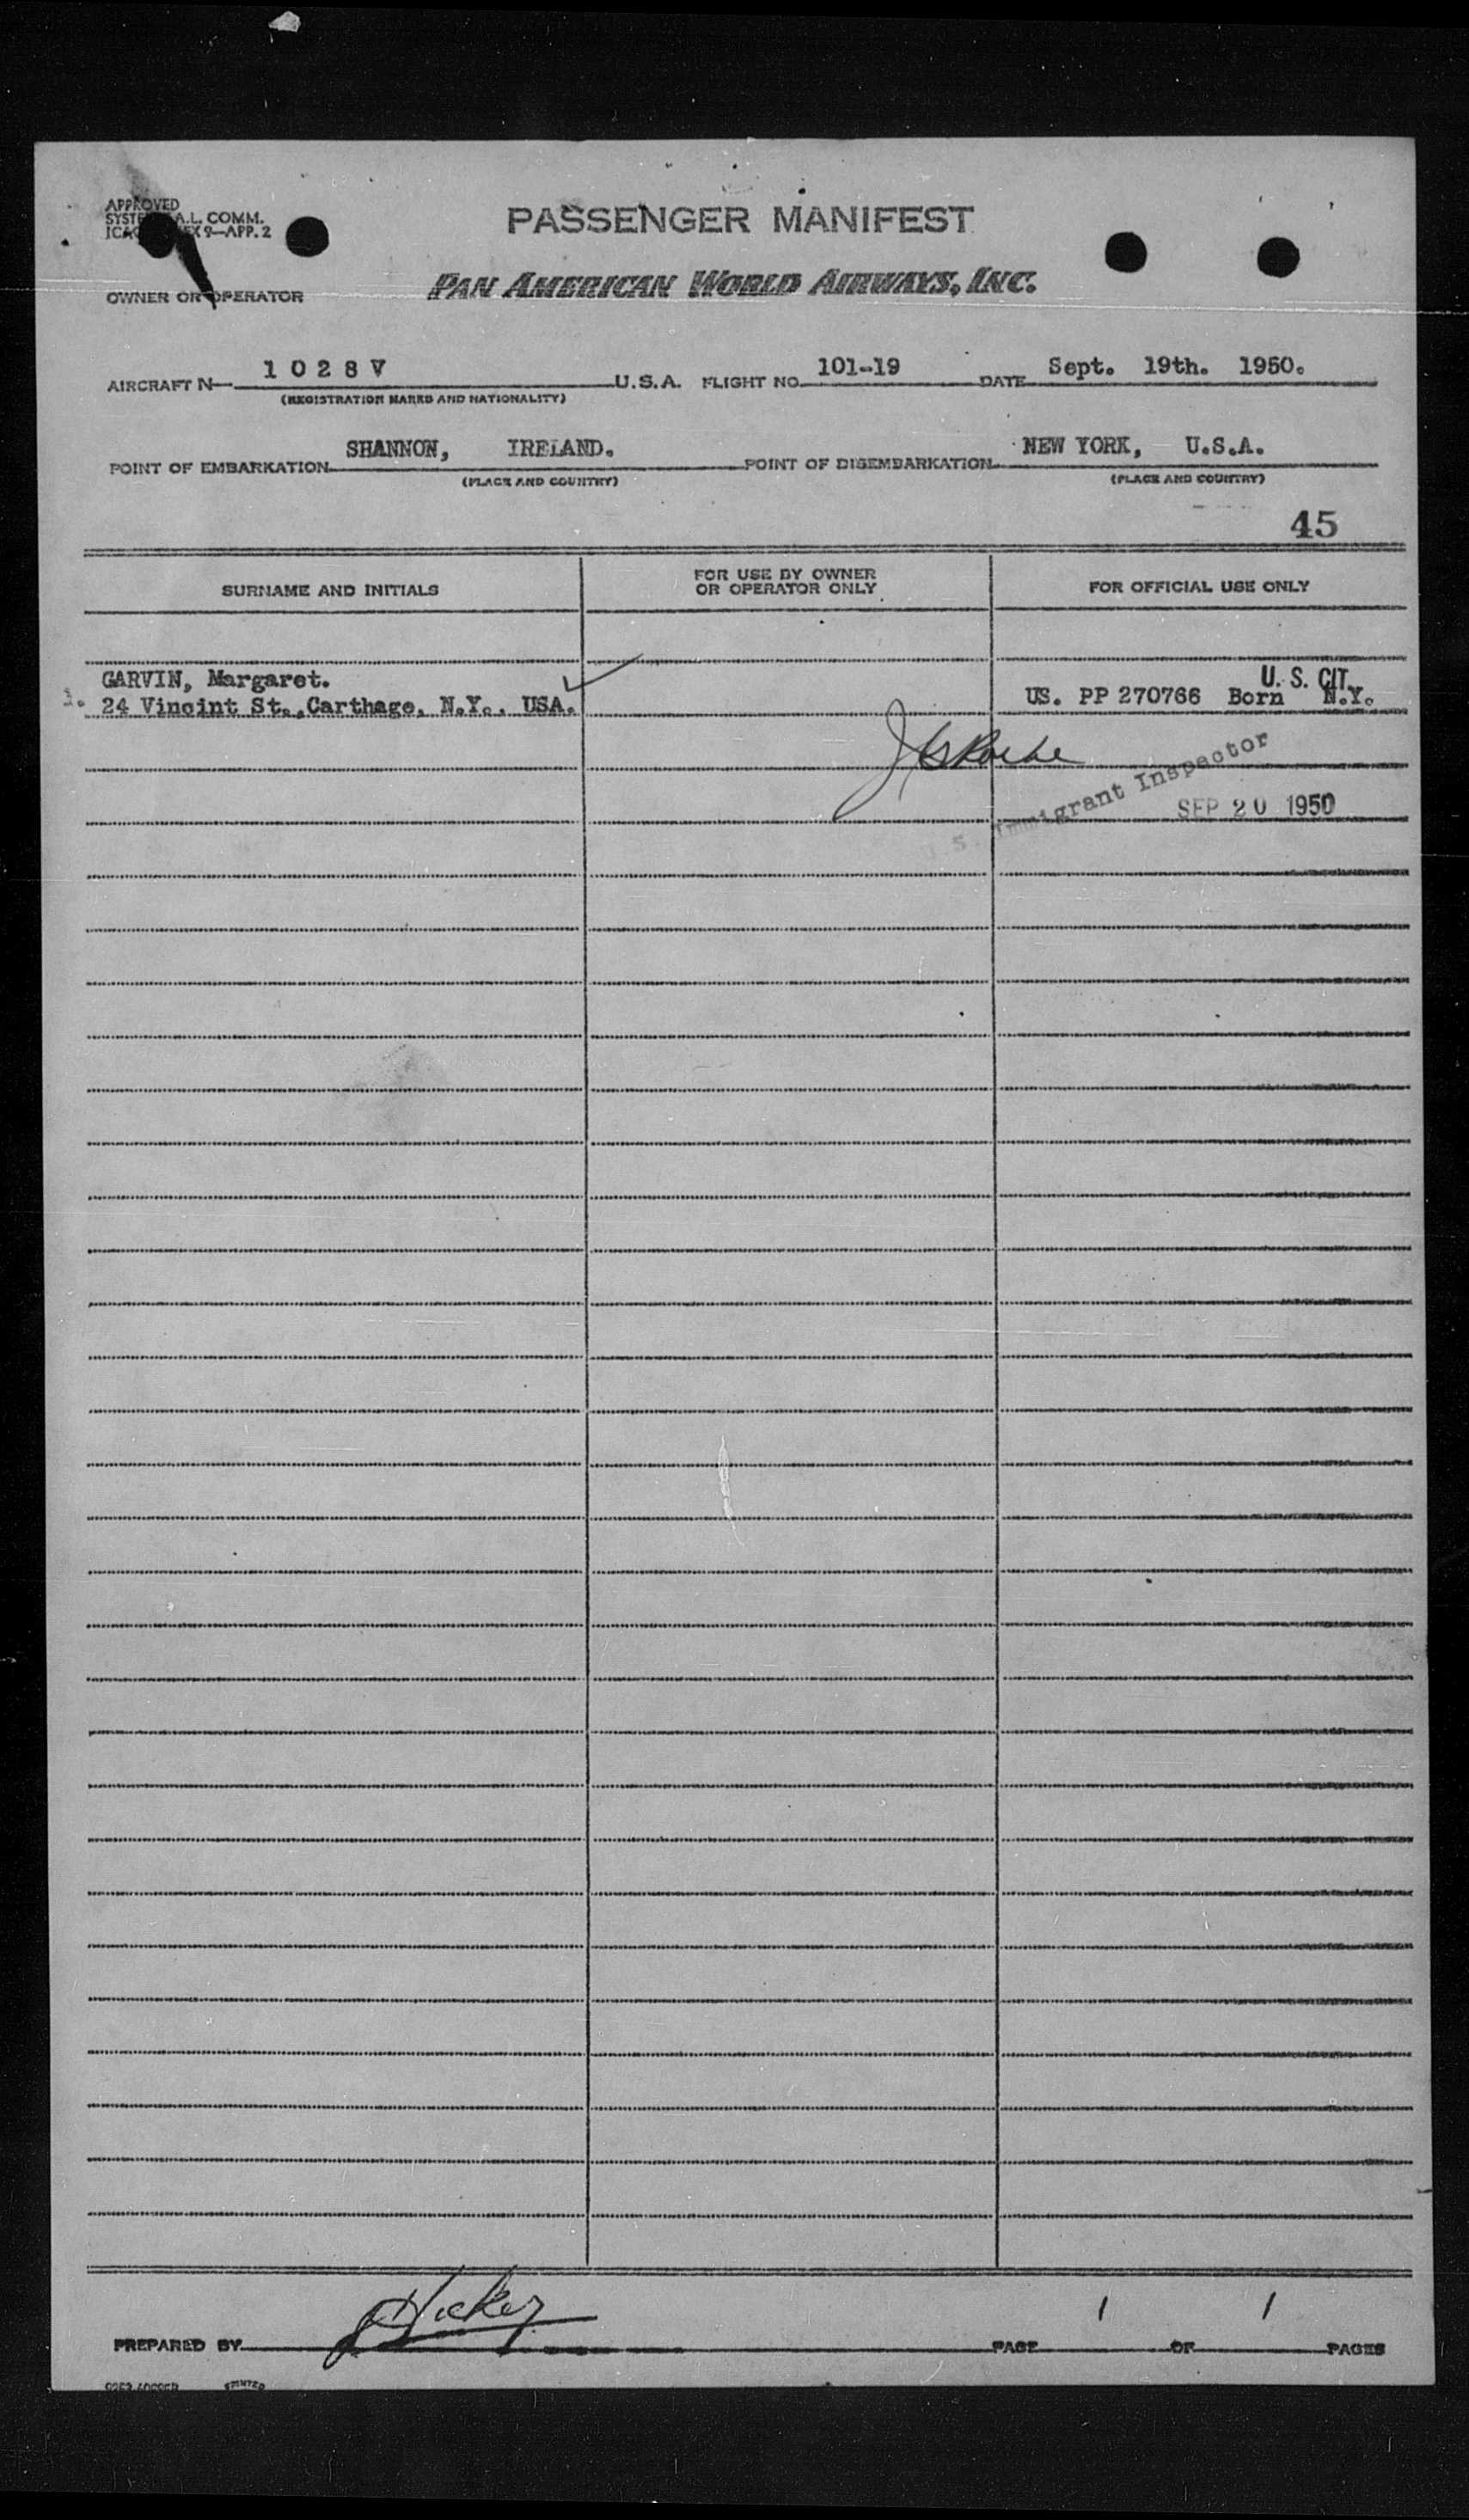 APPROVED
SYSTE A.L. COMM.
ICAO EX 9—APP. 2
PASSENGER MANIFEST
OWNER OR OPERATOR
PAN AMERICAN WORLD AIRWAYS, INC.
AIRCRAFT N— 1 0 2 8 V U.S.A. FLIGHT NO. 101-19 DATE Sept. 19th. 1950.
(REGISTRATION MARKS AND NATIONALITY)
POINT OF EMBARKATION SHANNON, IRELAND. POINT OF DISEMBARKATION NEW YORK, U.S.A.
(PLACE AND COUNTRY) (PLACE AND COUNTRY)
45
SURNAME AND INITIALS
FOR USE BY OWNER
OR OPERATOR ONLY
FOR OFFICIAL USE ONLY
GARVIN, Margaret.
U. S. CIT.
1. 24 Vincint St., Carthage, N.Y., USA. US. PP 270766 Born N.Y.
Immigrant Inspector
SEP 20 1950
PREPARED BY Hickey PAGE 1 OF 1 PAGES
PRINTED